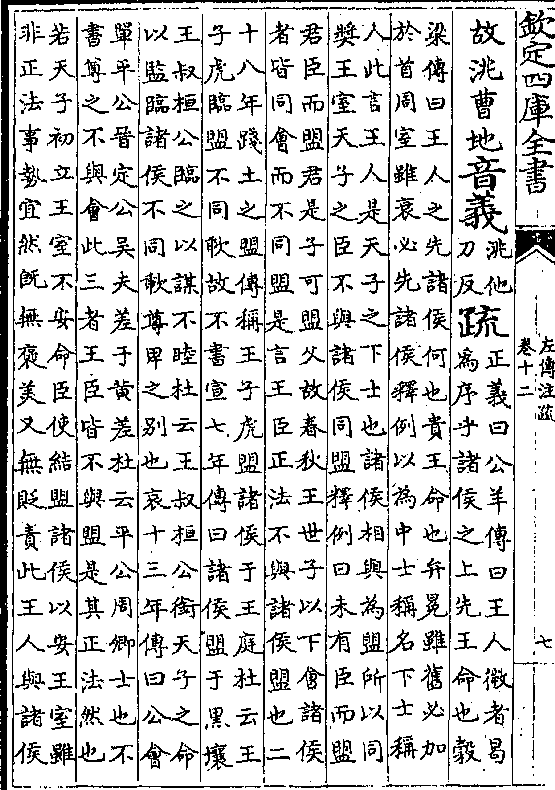 欽定四庫全書
左傳注疏
卷十二
七
故洮曹地音義洮他刀反疏正義曰公羊傳曰王人微者曷
為序乎諸侯之上先王命也穀
梁傳曰王人之先諸侯何也貴王命也弁冕雖舊必加
於首周室雖衰必先諸侯釋例以為中士稱名下士稱
人此言王人是天子之下士也諸侯相與為盟所以同
獎王室天子之臣不與諸侯同盟釋例曰未有臣而盟
君臣而盟君是子可盟父故春秋王世子以下會諸侯
者皆同會而不同盟是言王臣正法不與諸侯盟也二
十八年踐土之盟傳稱王子虎盟諸侯于王庭杜云王
子虎臨盟不同歃故不書宣七年傳曰諸侯盟于黑壤
王叔桓公臨之以謀不睦杜云王叔桓公銜天子之命
以監臨諸侯不同歃尊卑之別也哀十三年傳曰公會
單平公晉定公吳夫差于黃差杜云平公周卿士也不
書尊之不與會此三者王臣皆不與盟是其正法然也
若天子初立王室不安命臣使結盟諸侯以安王室雖
非正法事勢宜然既無褒美又無貶責此王人與諸侯